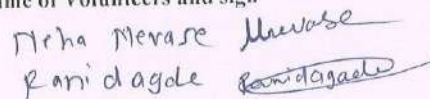 me of Volunteers and sign
Neha Nevase Nnevase
Rani dagde Ranidagade